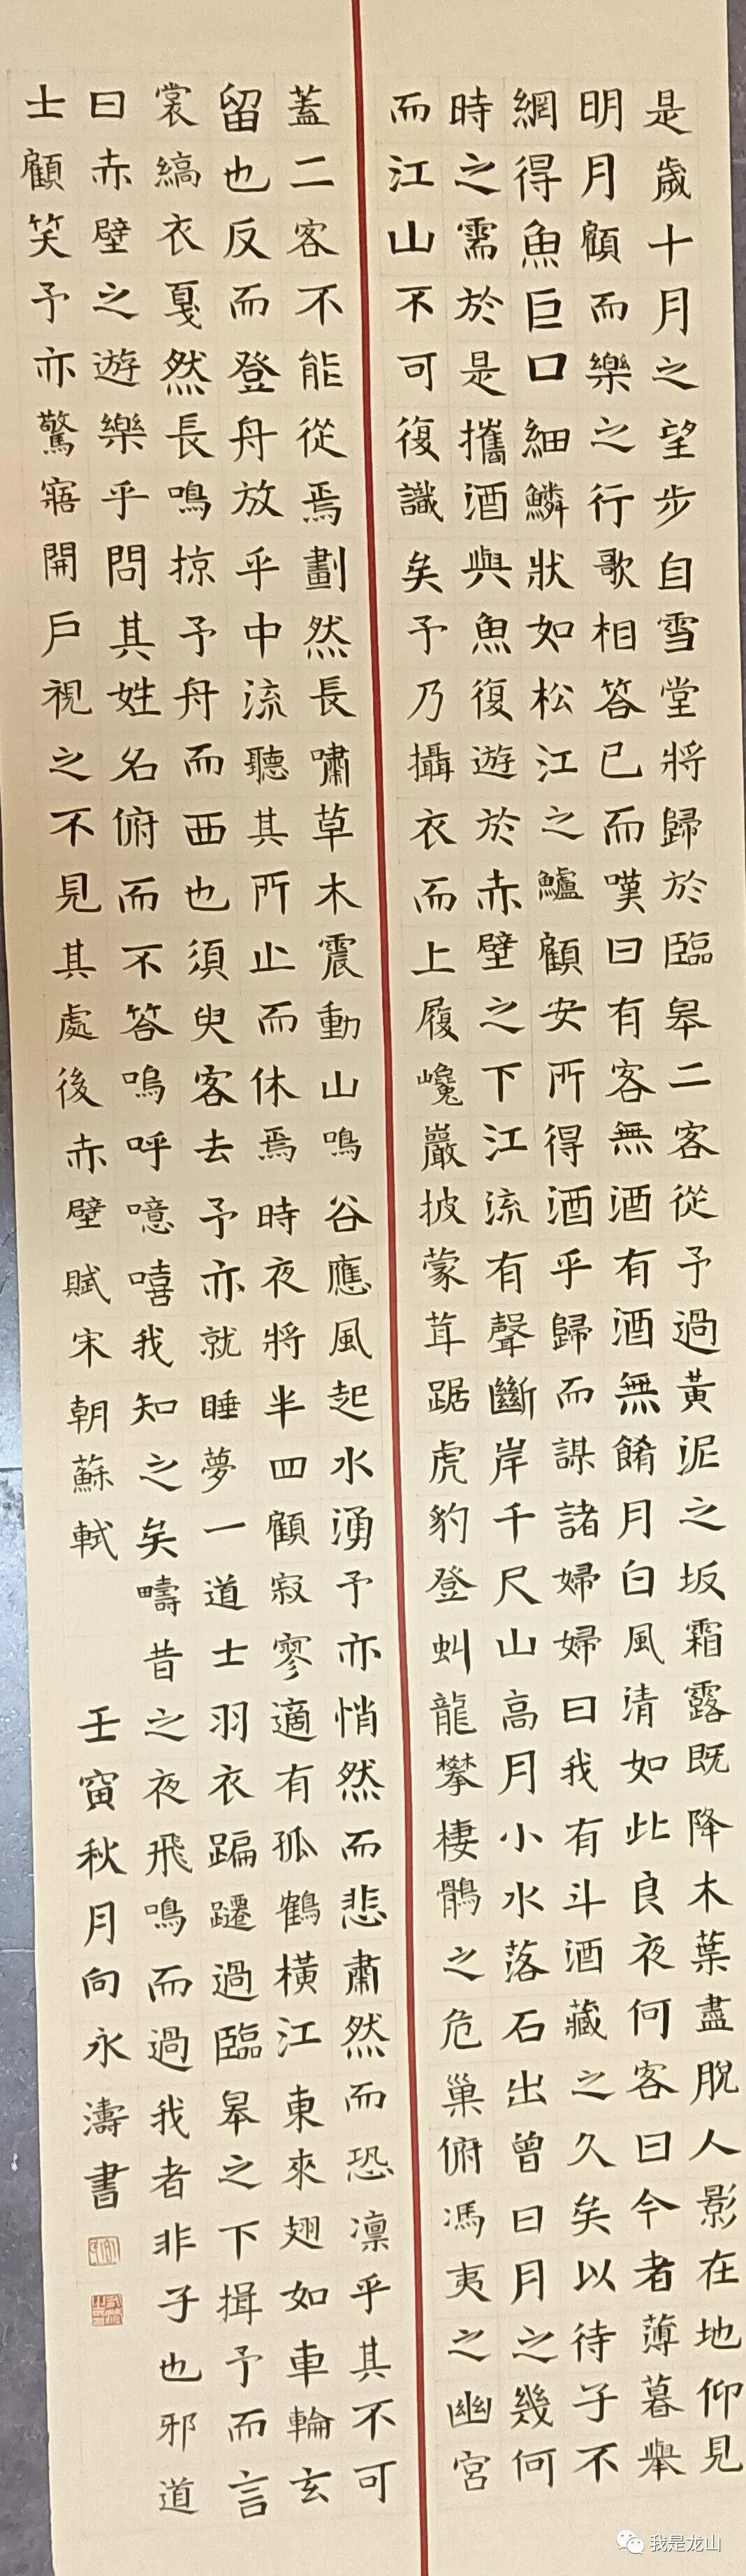 是歲十月之望步自雪堂將歸於臨皋二客從予過黃泥之坂霜露既降木葉盡脫人影在地仰見
明月顧而樂之行歌相答已而嘆曰有客無酒有酒無餚月白風清如此良夜何客曰今者薄暮舉
網得魚巨口細鱗狀如松江之鱸顧安所得酒乎歸而謀諸婦婦曰我有斗酒藏之久矣以待子不
時之需於是攜酒與魚復遊於赤壁之下江流有聲斷岸千尺山高月小水落石出曾日月之幾何
而江山不可復識矣予乃攝衣而上履巉巖披蒙茸踞虎豹登虯龍攀棲鶻之危巢俯馮夷之幽宮
蓋二客不能從焉劃然長嘯草木震動山鳴谷應風起水湧予亦悄然而悲肅然而恐凜乎其不可
留也反而登舟放乎中流聽其所止而休焉時夜將半四顧寂寥適有孤鶴橫江東來翅如車輪玄
裳縞衣戛然長鳴掠予舟而西也須臾客去予亦就睡夢一道士羽衣蹁躚過臨皋之下揖予而言
曰赤壁之遊樂乎問其姓名俯而不答嗚呼噫嘻我知之矣疇昔之夜飛鳴而過我者非子也邪道
士顧笑予亦驚寤開戶視之不見其處後赤壁賦宋朝蘇軾 壬寅秋月向永濤書
我是龙山